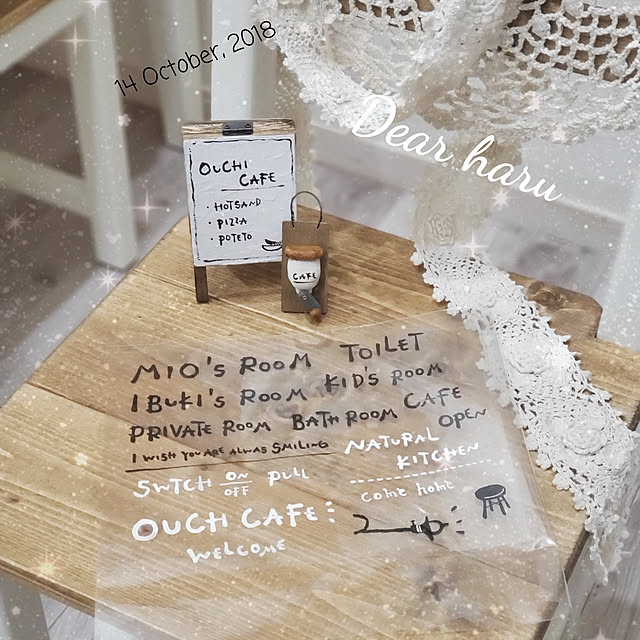 14 October, 2018
Dear haru
OUCHI
CAFE
· HOTSAND
· PIZZA
· POTETO
CAFE
MIO's ROOM TOILET
IBUKI's ROOM KID'S ROOM
PRIVATE ROOM BATH ROOM CAFE
OPEN
I WISH YOU ARE ALWAS SMILING
NATURAL
KITCHEN
SWTCH ON OFF PULL
come home
OUCHI CAFE
WELCOME